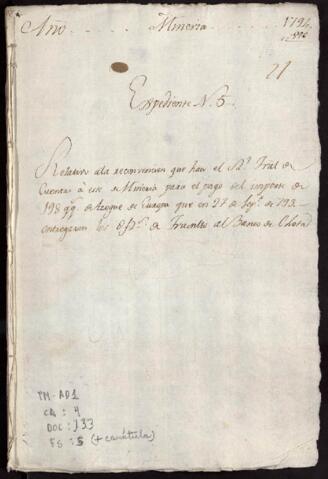 Año . . . . . Mineria . . . . . 1794
21
Expediente N. 5.
Relativo ala reconvencion que hace el Rl. Tribl. de
Cuentas à este de Mineria para el pago del importe de
198 qq. de Azogue de Europa que en 27 de Sepe. de 793
entregaron los de Fuentes al Banco de Chota
TM-AD1
CA: 4
DOC: 133
FS: 5 (+ carátula)